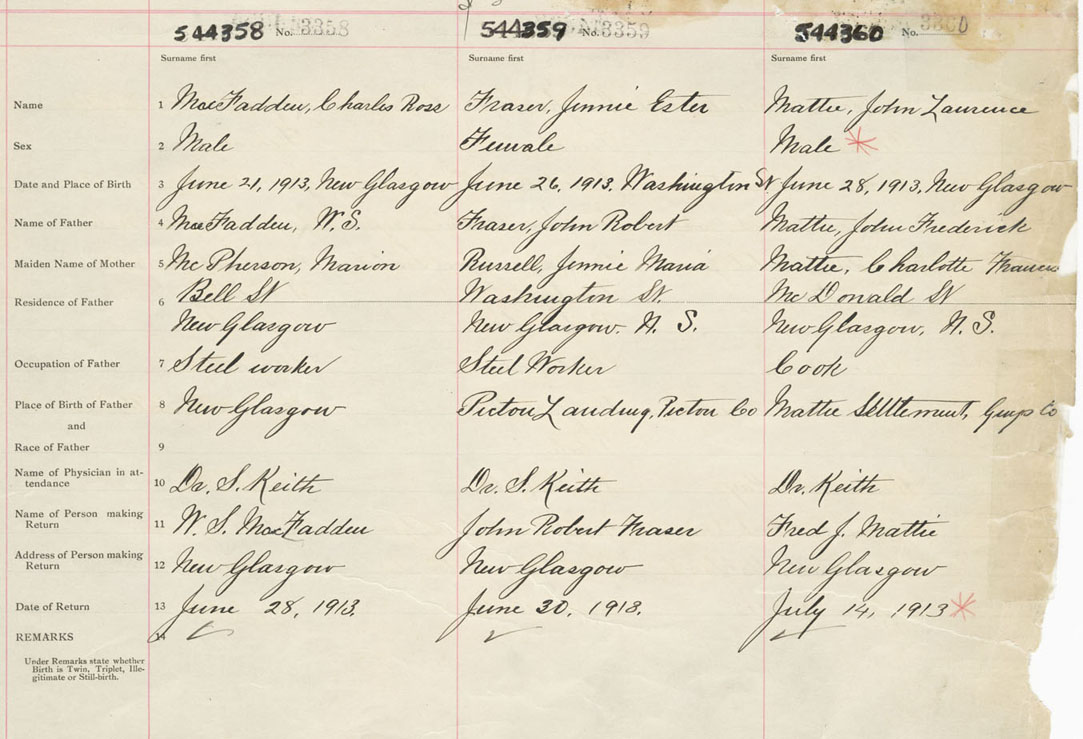 544358 No. 3358 544359 No. 3359 544360 No. 3360
Surname first Surname first Surname first
Name 1 MacFadden, Charles Ross Fraser, Jennie Ester Mattie, John Laurence
Sex 2 Male Female Male *
Date and Place of Birth 3 June 21, 1913, New Glasgow June 26, 1913, Washington St June 28, 1913, New Glasgow
Name of Father 4 MacFadden, W. S. Fraser, John Robert Mattie, John Frederick
Maiden Name of Mother 5 McPherson, Marion Russell, Jennie Maria Mattie, Charlotte
Residence of Father 6 Bell St Washington St. McDonald St
New Glasgow New Glasgow. N. S. New Glasgow, N. S.
Occupation of Father 7 Steel worker Steel Worker Cook
Place of Birth of Father 8 New Glasgow Pictou Landing, Pictou Co Mattie Settlement, Guys Co
and
Race of Father 9
Name of Physician in at-
tendance 10 Dr. S. Keith Dr. S. Keith Dr. Keith
Name of Person making
Return 11 W. S. MacFadden John Robert Fraser Fred J. Mattie
Address of Person making
Return 12 New Glasgow New Glasgow New Glasgow
Date of Return 13 June 28, 1913 June 30, 1913. July 14, 1913 *
REMARKS 14
Under Remarks state whether
Birth is Twin, Triplet, Ille-
gitimate or Still-birth.